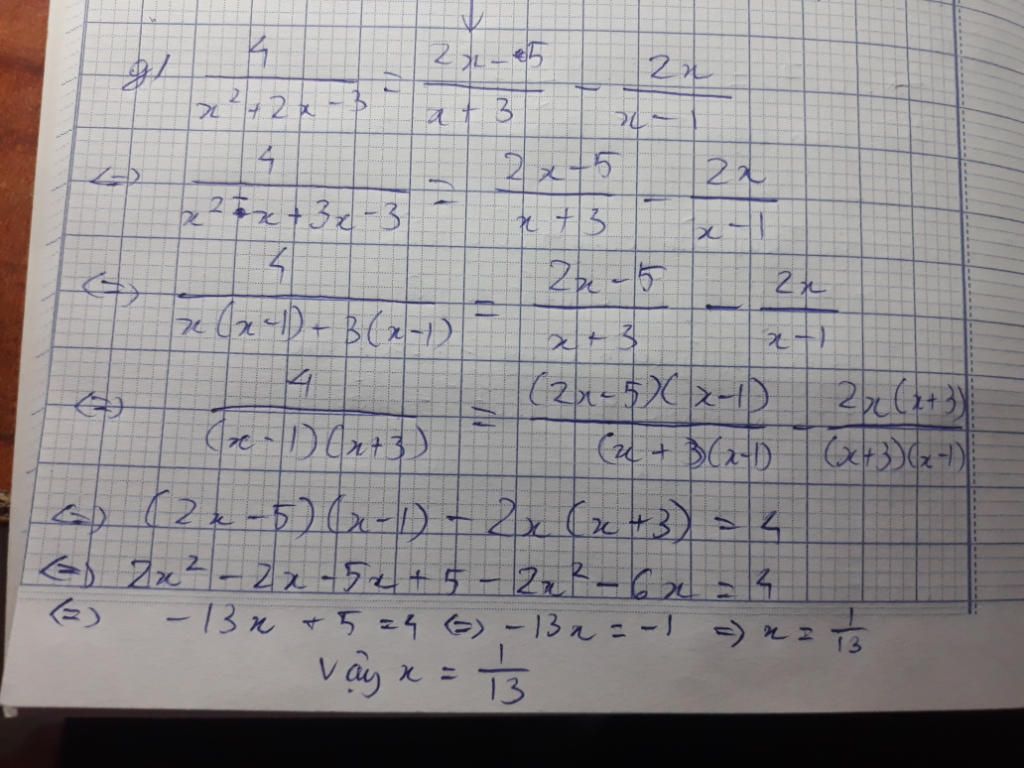 g) 4/(x² + 2x - 3) = (2x - 5)/(x + 3) - 2x/(x - 1)
<=> 4/(x² - x + 3x - 3) = (2x - 5)/(x + 3) - 2x/(x - 1)
<=> 4/(x(x - 1) + 3(x - 1)) = (2x - 5)/(x + 3) - 2x/(x - 1)
<=> 4/((x - 1)(x + 3)) = (2x - 5)(x - 1)/((x + 3)(x - 1)) - 2x(x + 3)/((x + 3)(x - 1))
<=> (2x - 5)(x - 1) - 2x(x + 3) = 4
<=> 2x² - 2x - 5x + 5 - 2x² - 6x = 4
<=> -13x + 5 = 4 <=> -13x = -1 => x = 1/13
Vậy x = 1/13